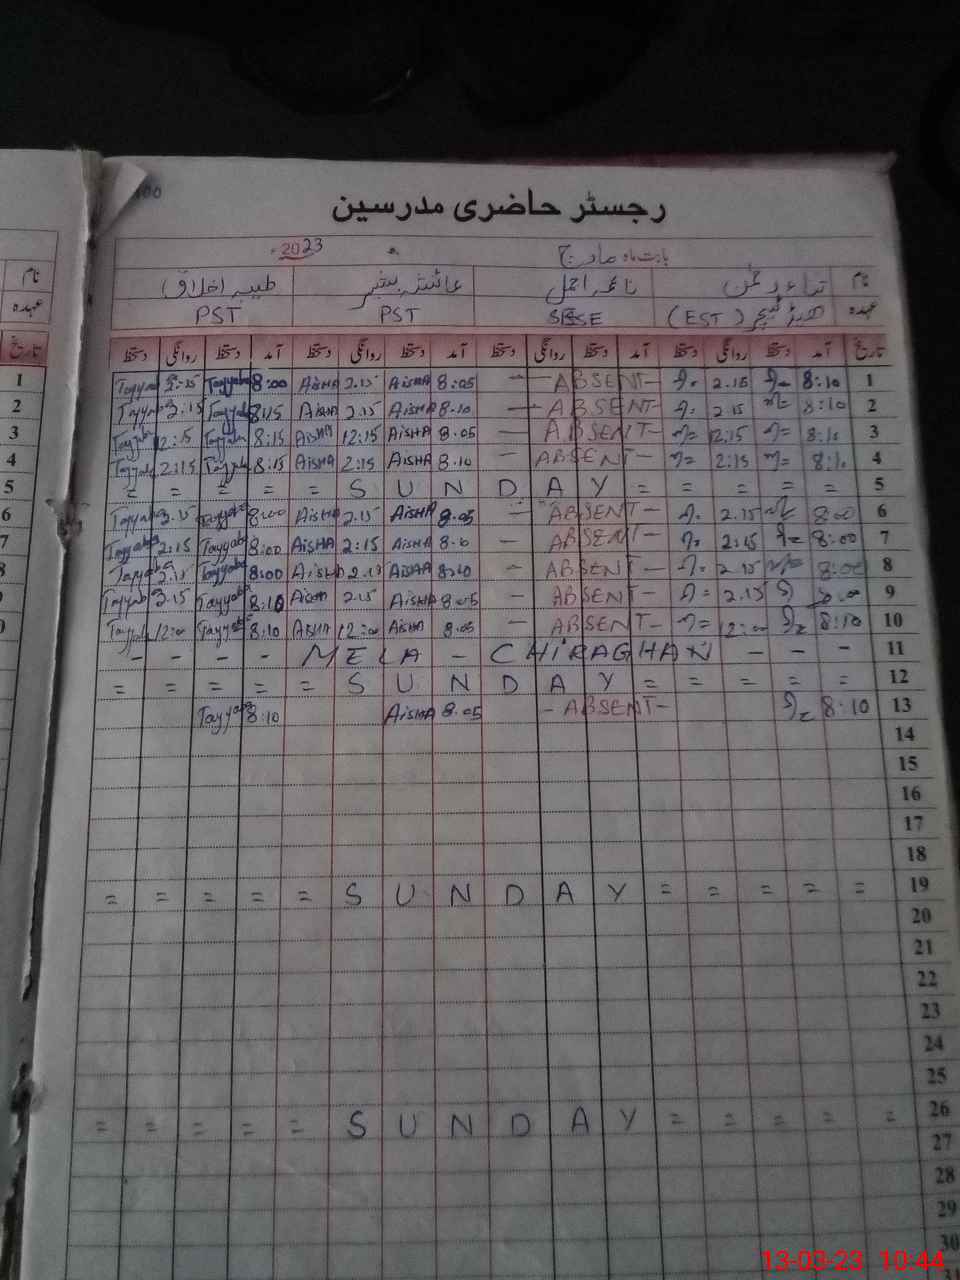 رجسٹر حاضری مدرسین
بابت ماہ مارچ 2023
نام ثناء رحمٰن نائمہ اجمل عائشہ بشیر طیبہ اخلاق
عہدہ ہیڈ ٹیچر (EST) SESE PST PST
تاریخ آمد دستخط روانگی دستخط آمد دستخط روانگی دستخط آمد دستخط روانگی دستخط آمد دستخط روانگی دستخط
1 8:10 2.15 -ABSENT- 8:05 AiSHA 2.15 AiSHA 8:00 Tayyaba 2:15 Tayyaba
2 8:10 2.15 -ABSENT- 8.10 AiSHA 2.15 AiSHA 8:15 Tayyaba 2:15 Tayyaba
3 8:10 12:15 -ABSENT- 8.05 AiSHA 12:15 AiSHA 8:15 Tayyaba 12:15 Tayyaba
4 8:10 2:15 -ABSENT- 8.10 AiSHA 2:15 AiSHA 8:15 Tayyaba 2:15 Tayyaba
5 = = = = = S U N D A Y = = = = =
6 8:00 2.15 -ABSENT- 8.05 AiSHA 2.15 AiSHA 8:00 Tayyaba 2.15 Tayyaba
7 8:00 2:15 -ABSENT- AiSHA 2:15 AiSHA 8:00 Tayyaba 2:15 Tayyaba
8 8:00 2.15 -ABSENT- 8:10 AiSHA 2.15 AiSHA 8:00 Tayyaba 2.15 Tayyaba
9 2.15 -ABSENT- 8.05 AiSHA 2.15 AiSHA 8:10 Tayyaba 2.15 Tayyaba
10 8:10 12:00 -ABSENT- 8.05 AiSHA 12:00 AiSHA 8:10 Tayyaba 12:00 Tayyaba
11 - - - - MELA - CHIRAGHAN - - -
12 = = = = = S U N D A Y = = = = =
13 8:10 -ABSENT- 8.05 AiSHA 8:10 Tayyaba
14
15
16
17
18
19 = = = = = S U N D A Y = = = = =
20
21
22
23
24
25
26 = = = = = S U N D A Y = = = = =
27
28
29
30
31
نام
عہدہ
تاریخ
1
2
3
4
5
6
7
8
13-03-23 10:44